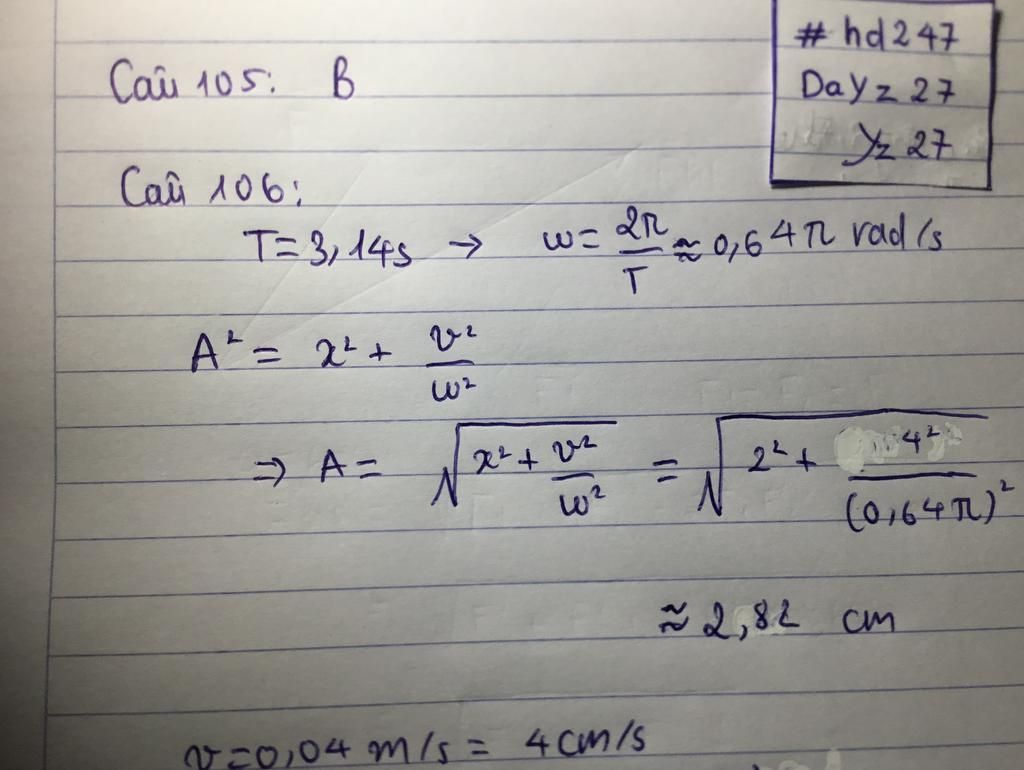 # hd247
DaYz 27
Yz 27
Câu 105: B
Câu 106:
T = 3,14s → ω = 2π/T ≈ 0,64π rad/s
A² = x² + v²/ω²
⇒ A = √(x² + v²/ω²) = √(2² + 4²/(0,64π)²)
≈ 2,82 cm
v = 0,04 m/s = 4cm/s